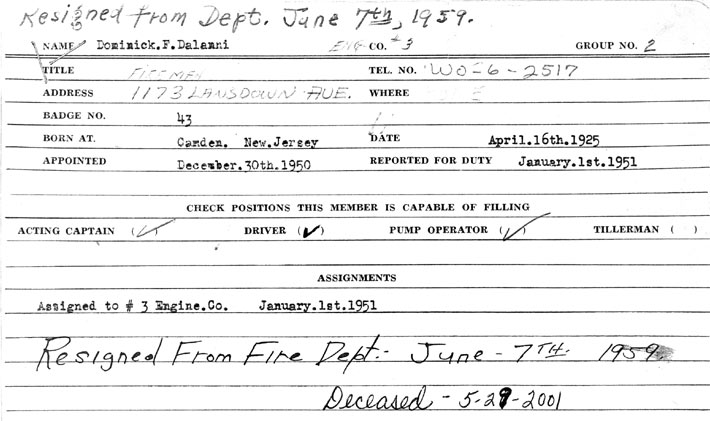 Resigned From Dept. June 7th, 1959.
NAME Dominick.F.Dalanni ENG CO. #3 GROUP NO. 2
TITLE TEL. NO. WO-6-2517
ADDRESS 1173 LANSDOWN AUE. WHERE
BADGE NO. 43
BORN AT. Camden. New.Jersey DATE April.16th.1925
APPOINTED December.30th.1950 REPORTED FOR DUTY January.1st.1951
CHECK POSITIONS THIS MEMBER IS CAPABLE OF FILLING
ACTING CAPTAIN (✓) DRIVER (✓) PUMP OPERATOR (✓) TILLERMAN ( )
ASSIGNMENTS
Assigned to # 3 Engine.Co. January.1st.1951
Resigned From Fire Dept.- June - 7TH. 1959.
Deceased - 5-29-2001